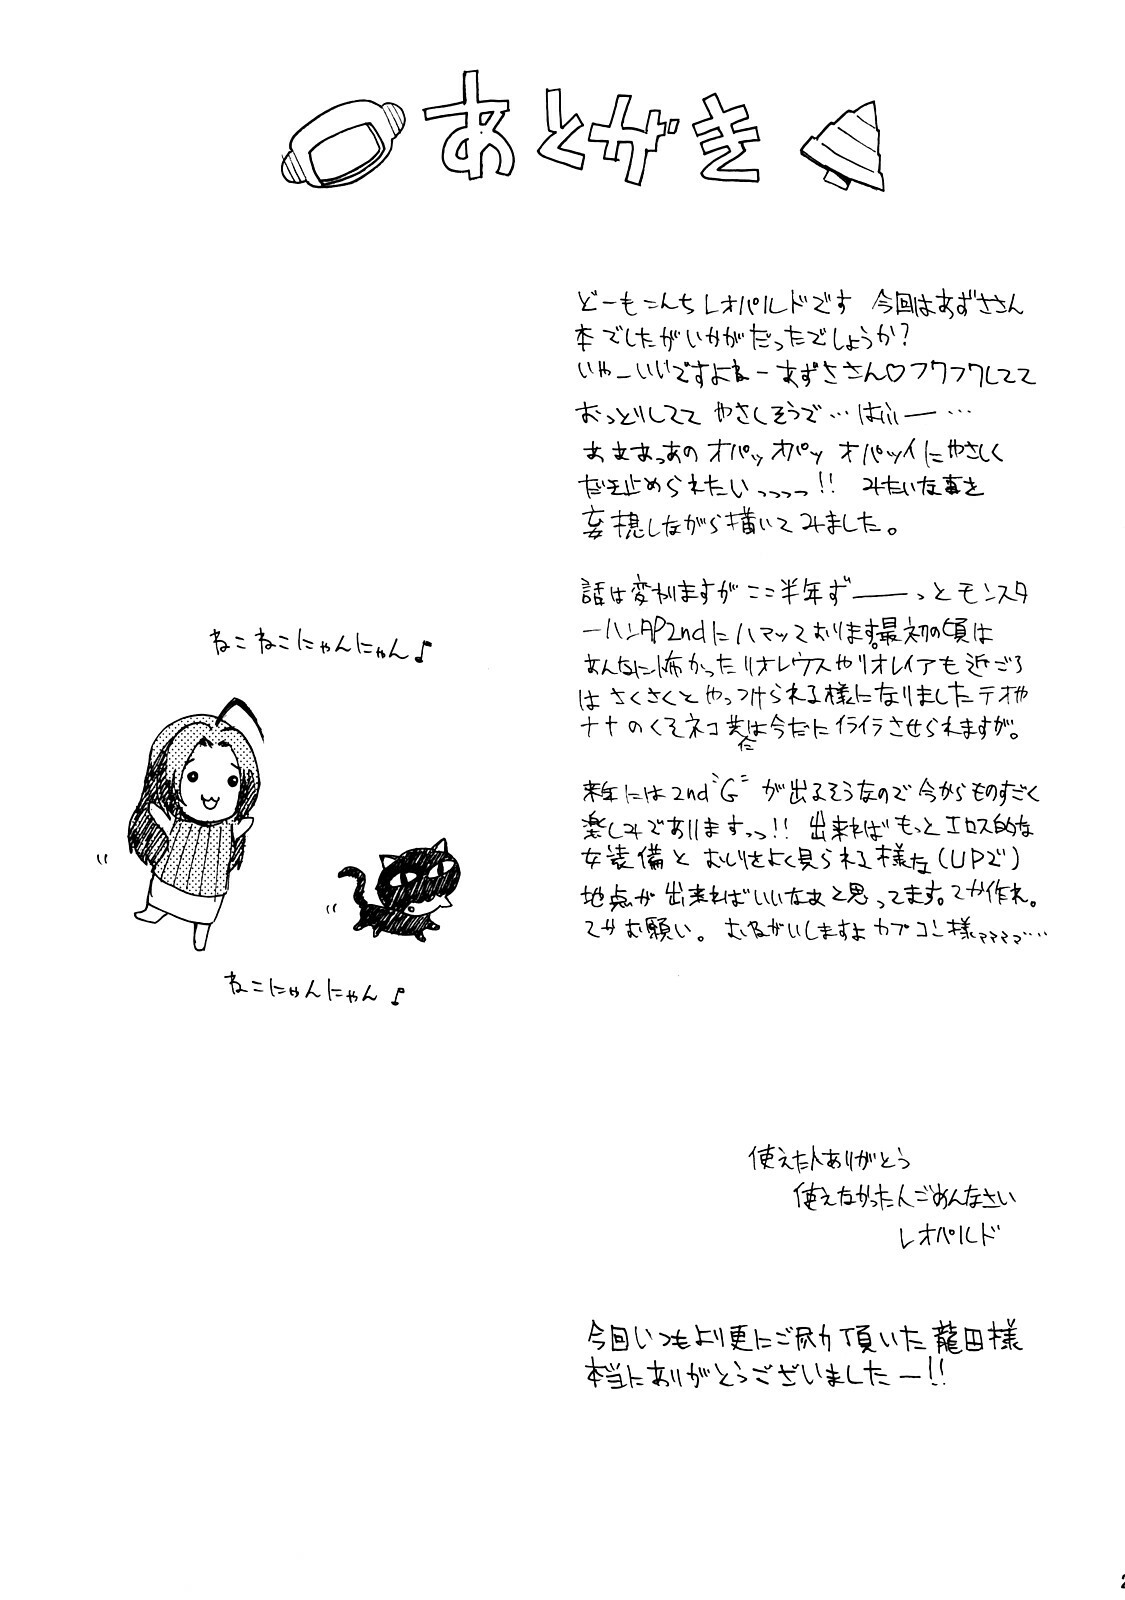 あとがき
どーもこんちレオパルドです 今回はあずささん
本でしたがいかがだったでしょうか?
いやーいいですよねーあずささん♡フワフワしてて
おっとりしてて やさしそうで…はふぅー…
あぁまっあの オパッ オパッ オパッイにやさしく
だき止められたいっっっっ!! みたいな事を
妄想しながら描いてみました。
話は変わりますがここ半年ず――っとモンスタ
ーハンタP2ndにハマッております。最初の頃は
あんなに怖かったリオレウスやリオレイアも近ごろ
はさくさくとやっつけられる様になりましたテオや
ナナのくそネコ共には今だにイライラさせられますが。
来年には2nd"G"が出るそうなので今からものすごく
楽しみでありますっっ!! 出来ればもっとエロス的な
女装備とおしりをよく見られる様な(UPで)
地点が出来ればいいなぁと思ってます。てか作れ。
てかお願い。おねがいしますよカプコン様ァァァァ…
ねこねこにゃんにゃん♪
ねこにゃんにゃん♪
使えた人ありがとう
使えなかった人ごめんなさい
レオパルド
今回いつもより更にご尽力頂いた龍田様
本当にありがとうございましたー!!
2